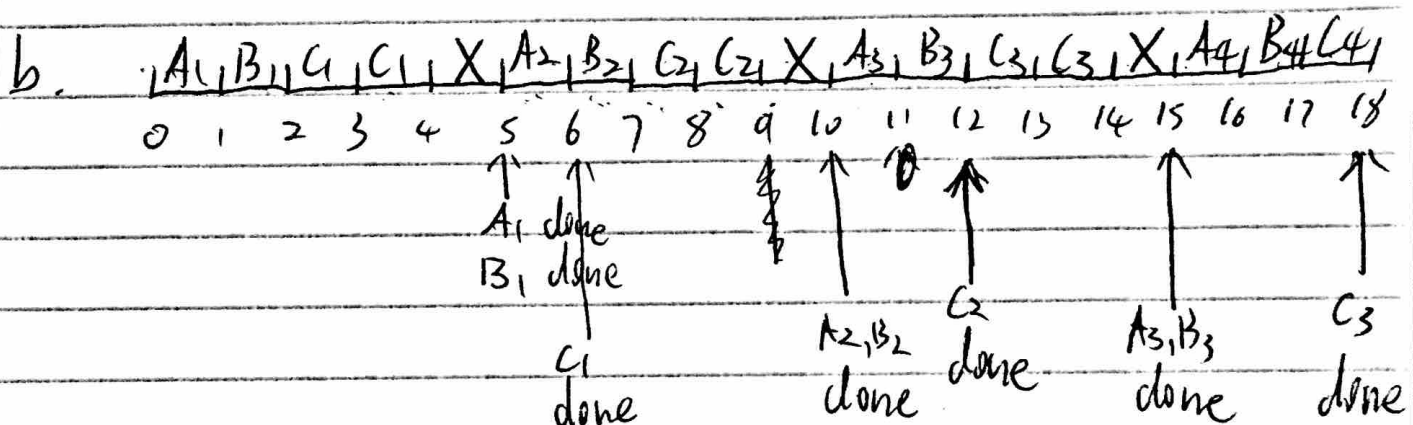 b. A1 B1 C1 C1 X A2 B2 C2 C2 X A3 B3 C3 C3 X A4 B4 C4
0 1 2 3 4 5 6 7 8 9 10 11 12 13 14 15 16 17 18
A1 done
B1 done
C1
done
A2,B2
done
C2
done
A3,B3
done
C3
done